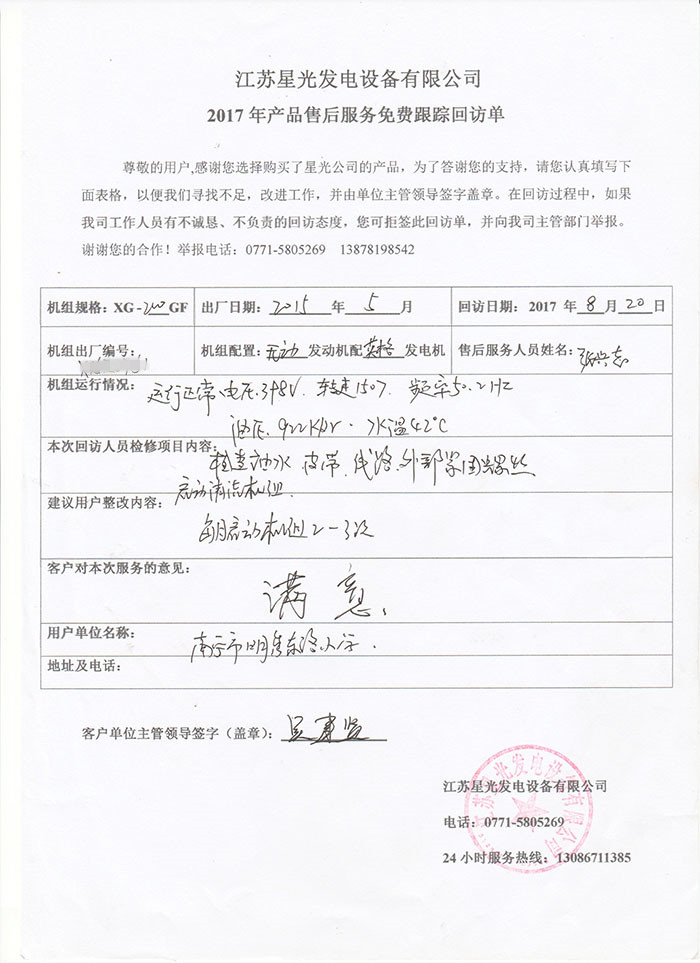 江苏星光发电设备有限公司
2017年产品售后服务免费跟踪回访单
尊敬的用户,感谢您选择购买了星光公司的产品，为了答谢您的支持，请您认真填写下
面表格，以便我们寻找不足，改进工作，并由单位主管领导签字盖章。在回访过程中，如果
我司工作人员有不诚恳、不负责的回访态度，您可拒签此回访单，并向我司主管部门举报。
谢谢您的合作！举报电话：0771-5805269 13878198542
机组规格：XG-200GF 出厂日期：2015 年 5 月 回访日期：2017 年 8 月 20 日
机组出厂编号： 机组配置：无动 发动机配 英格 发电机 售后服务人员姓名：
机组运行情况：运行正常 电压398V. 转速1507. 频率50.2Hz
油压. 水温42℃
本次回访人员检修项目内容：检查油水 皮带、线路、外部紧固螺丝
启动清洗机组.
建议用户整改内容：
每月启动机组2-3次
客户对本次服务的意见：
满意、
用户单位名称：南宁市明秀东路小学.
地址及电话：
客户单位主管领导签字（盖章）：
江苏星光发电设备有限公司
电话：0771-5805269
24小时服务热线：13086711385
江苏星光发电设备有限公司